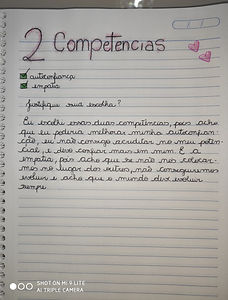 2 Competencias
autoconfiança
empatia
Justifique sua escolha?
Eu escolhi essas duas competências, pois acho
que eu poderia melhorar minha autoconfian-
ça, eu não consigo acreditar no meu poten-
cial, e devo confiar mais em mim. E a
empatia, pois acho que se nós nos colocar-
mos no lugar dos outros, nós conseguiremos
evoluir e acho que o mundo deve evoluir
sempre.
SHOT ON MI 9 LITE
AI TRIPLE CAMERA